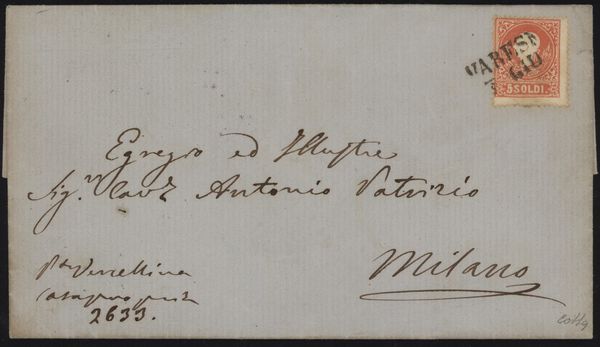 VARESE
GIU
5 SOLDI.
Egregio ed Illustre
Sig.r Cav.r Antonio Patrizio
Milano
P.ta Vercellina
Casa propria
2633.